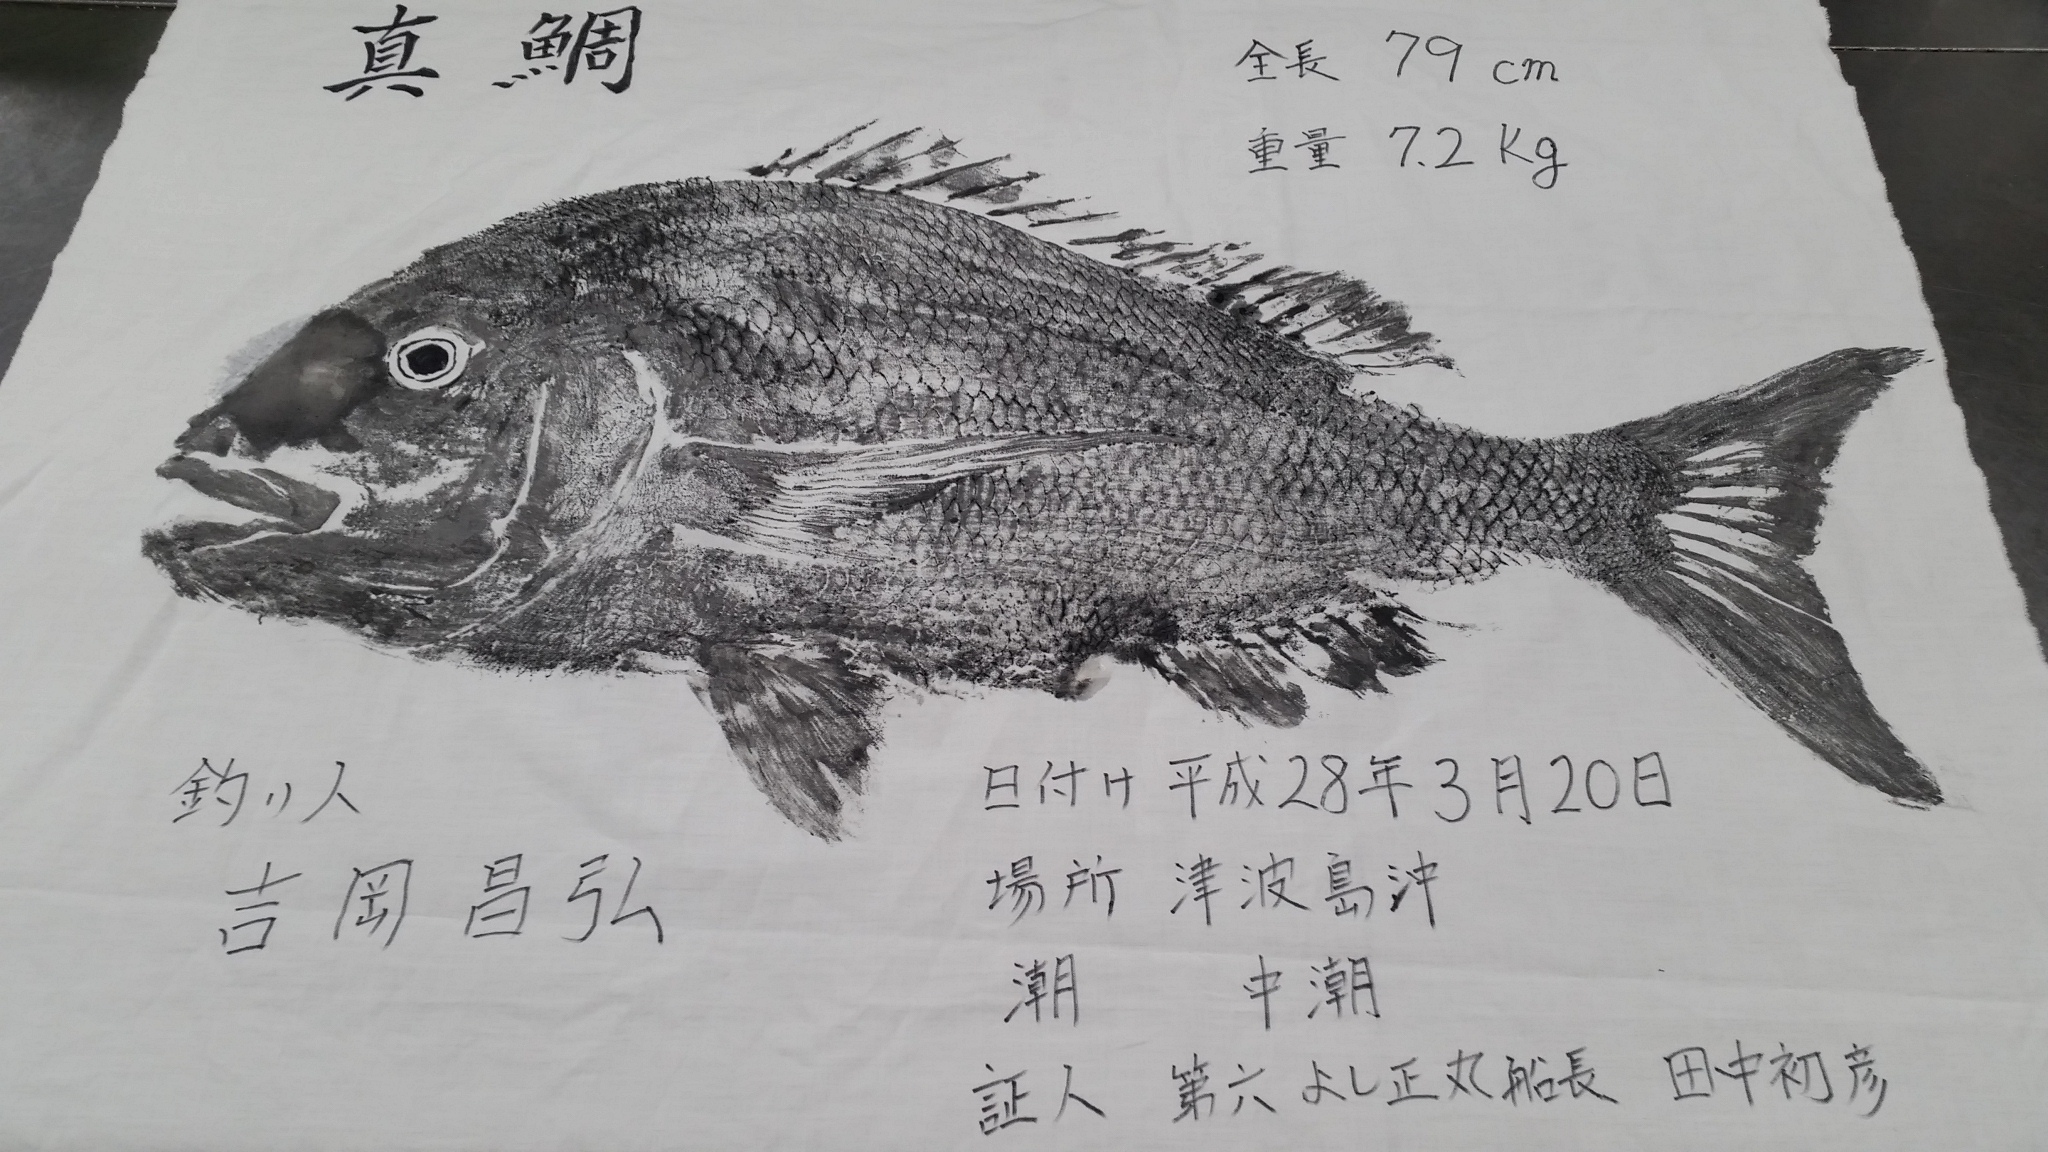 真鯛
全長 79 cm
重量 7.2 Kg
釣り人
吉岡昌弘
日付け 平成28年3月20日
場所 津波島沖
潮 中潮
証人 第六よし正丸船長 田中初彦